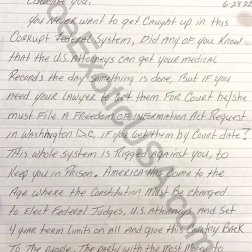 you Never want to get Caught up in this
Corrupt Federal System, Did any of you Know
that the U.S. Attorneys can get your medical
Records the day something is done, But if you
need your Lawyer to get them For Court he/she
must File A Freedom of Information Act Request
in Washington DC, if you get them by Court date?
This whole system is Rigged against you, to
Keep you in Prison. America has Come to the
Age where the Constitution Must be changed
to Elect Federal Judges, U.S. Attorneys, and Set
4 year term Limits on All and give this Country Back
To The People. The party with the most Money to